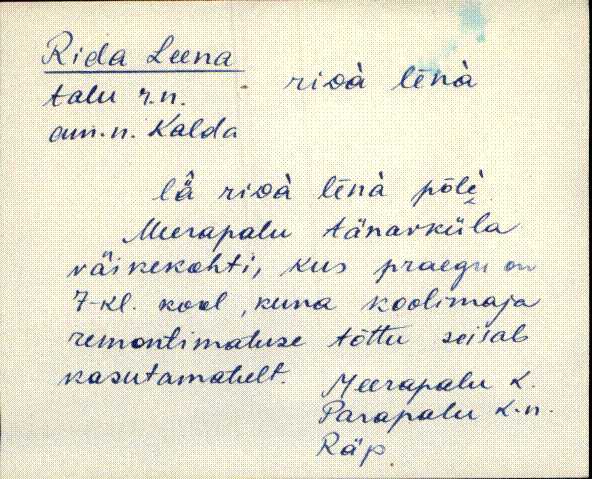 Rida Leena
talu r.n. - riδà lēnà
am.n. Kalda
lǟ riδà lēnà põlè
Meerapalu tänavküla
väikekohti, kus praegu on
7-kl. kool, kuna koolimaja
remontimatuse tõttu seisab
kasutamatult.
Meerapalu k.
Parapalu k.n.
Räp.